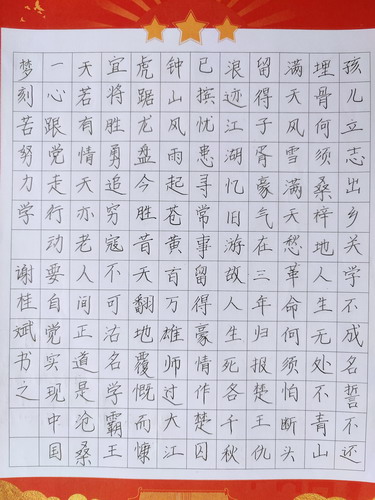 孩儿立志出乡关学不成名誓不还
埋骨何须桑梓地人生无处不青山
满天风雪满天愁革命何须怕断头
留得子胥豪气在三年归报楚王仇
浪迹江湖忆旧游故人生死各千秋
已摈忧患寻常事留得豪情作楚囚
钟山风雨起苍黄百万雄师过大江
虎踞龙盘今胜昔天翻地覆慨而慷
宜将胜勇追穷寇不可沽名学霸王
天若有情天亦老人间正道是沧桑
一心跟党走行动要自觉实现中国
梦刻苦努力学 谢桂斌书之